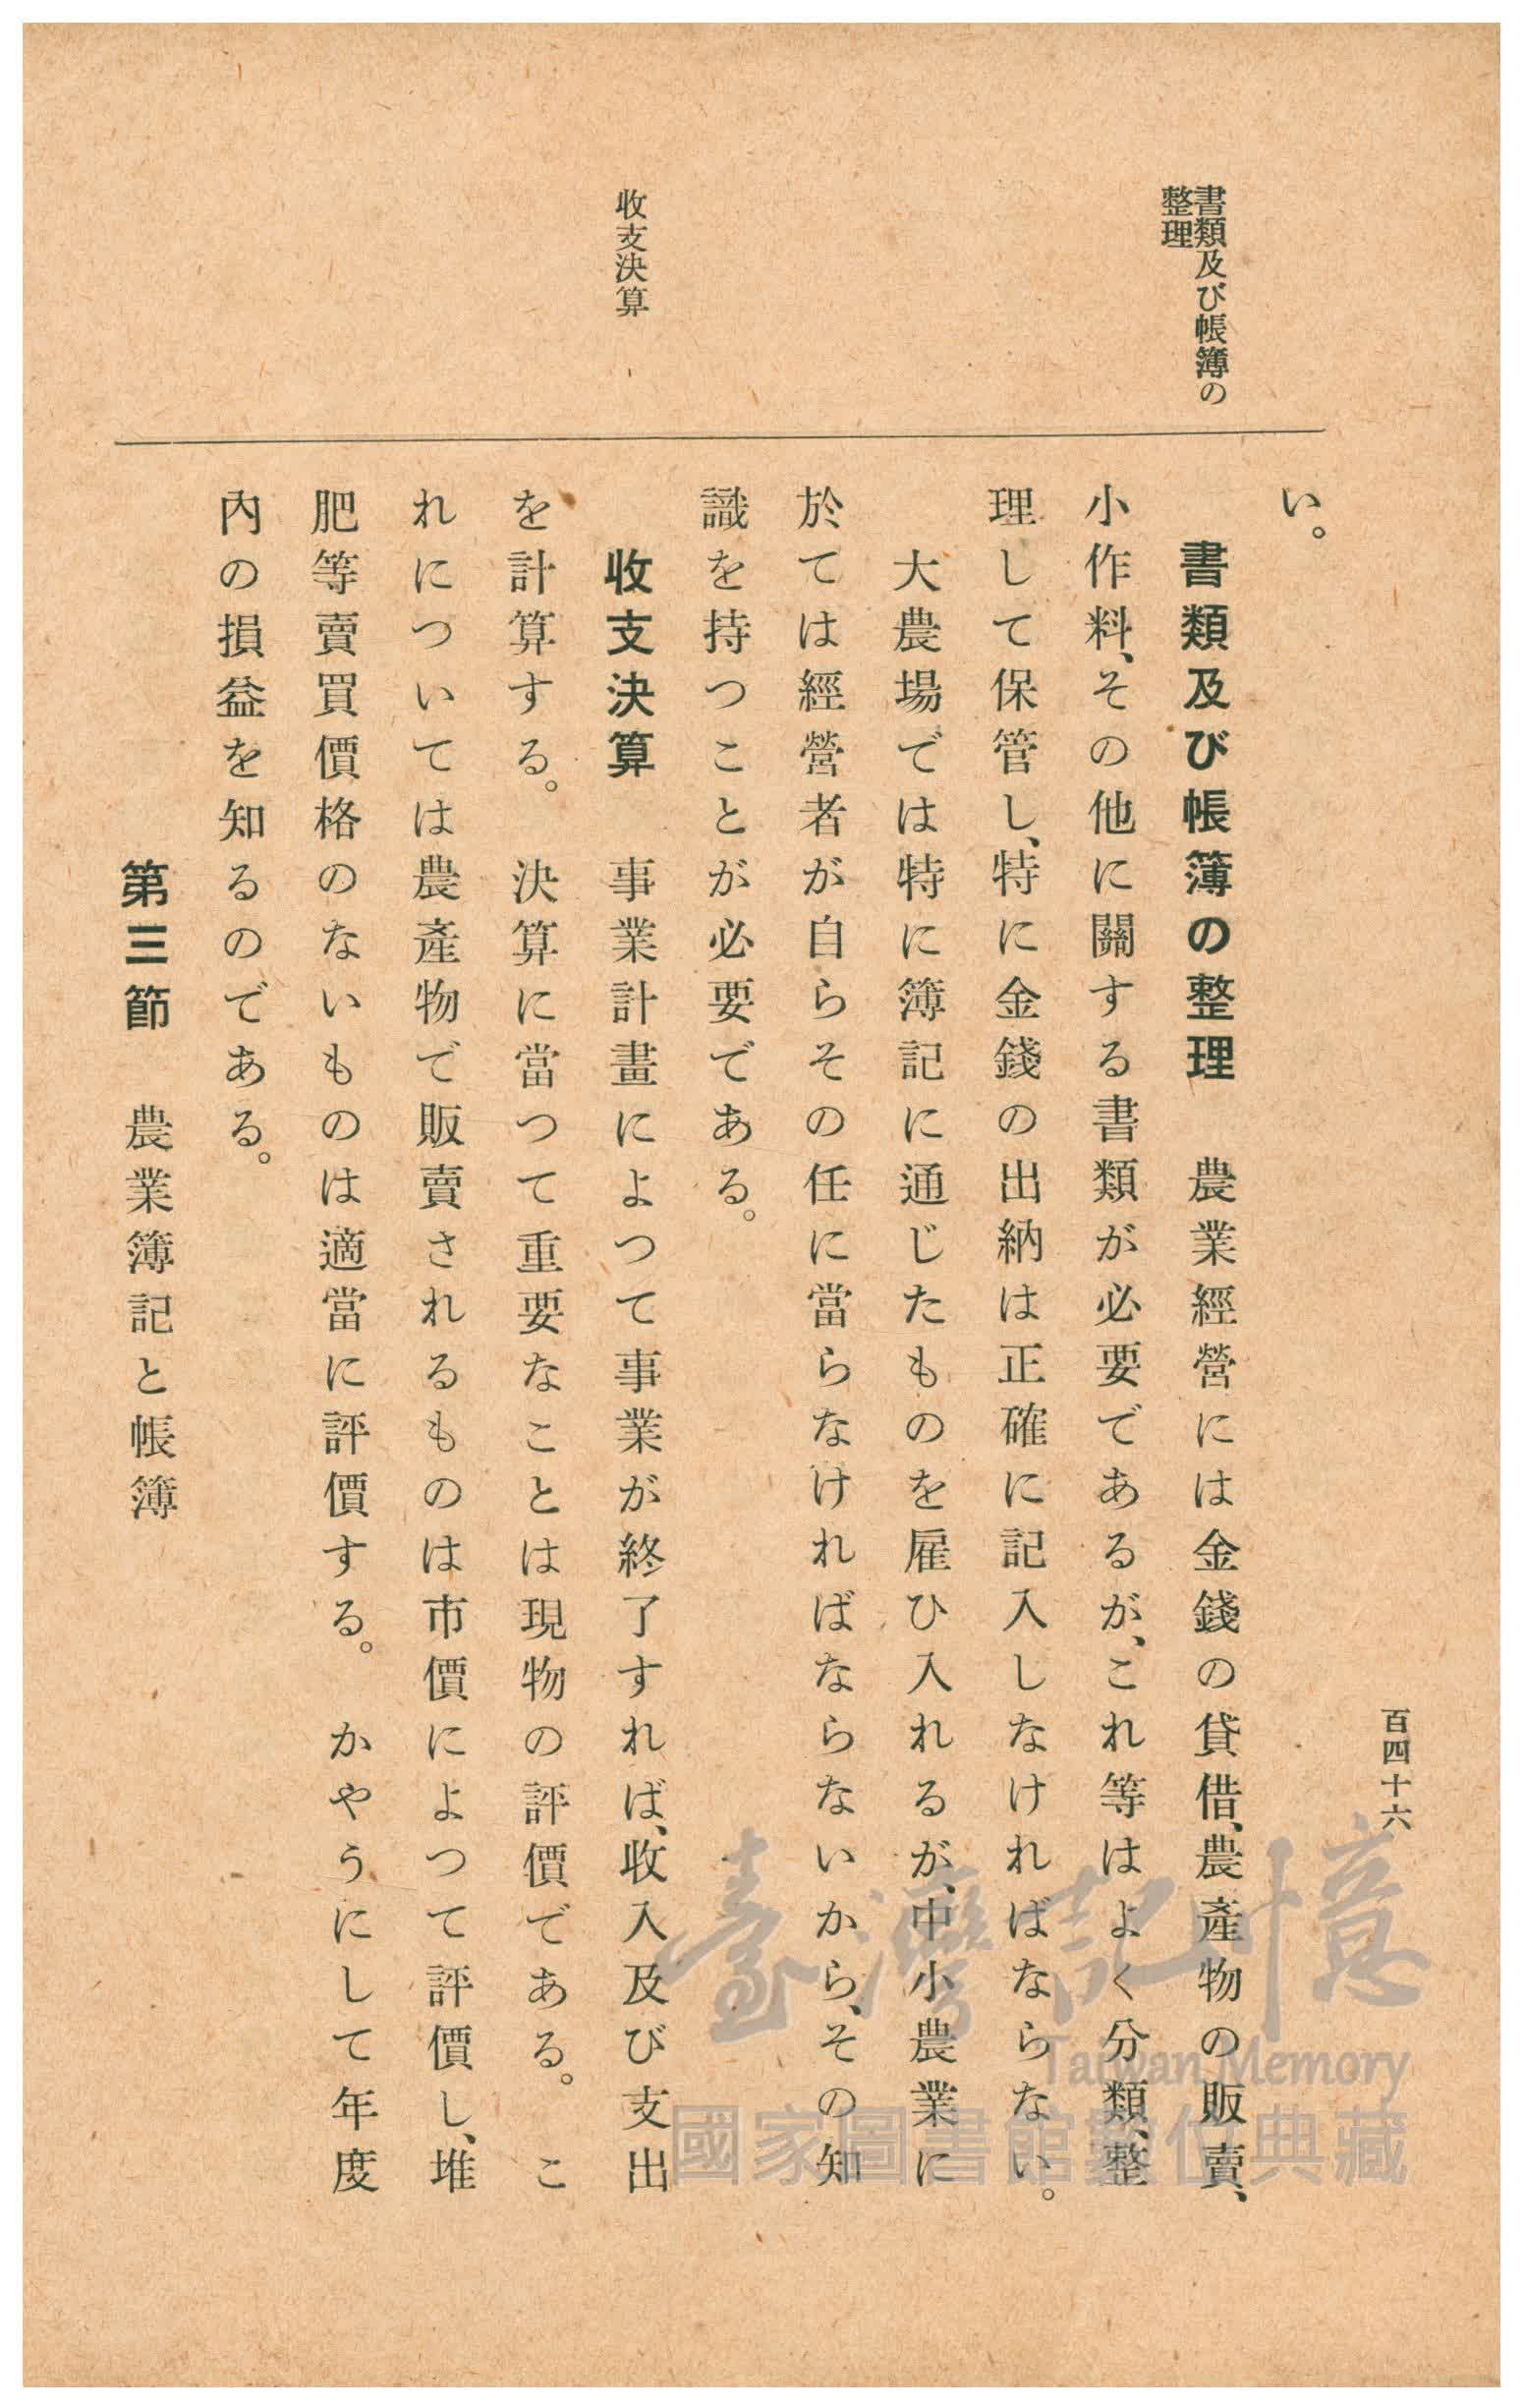 百四十六
書類及び帳簿の
整理
收支決算
い。
書類及び帳簿の整理　農業經營には金錢の貸借、農產物の販賣、
小作料、その他に關する書類が必要であるが、これ等はよく分類、整
理して保管し、特に金錢の出納は正確に記入しなければならない。
大農場では特に簿記に通じたものを雇ひ入れるが、中小農業に
於ては經營者が自らその任に當らなければならないから、その知
識を持つことが必要である。
收支決算　事業計畫によつて事業が終了すれば、收入及び支出
を計算する。　決算に當つて重要なことは現物の評價である。　こ
れについては農產物で販賣されるものは市價によつて評價し、堆
肥等賣買價格のないものは適當に評價する。　かやうにして年度
內の損益を知るのである。
第三節　農業簿記と帳簿
臺灣記憶
Taiwan Memory
國家圖書館數位典藏